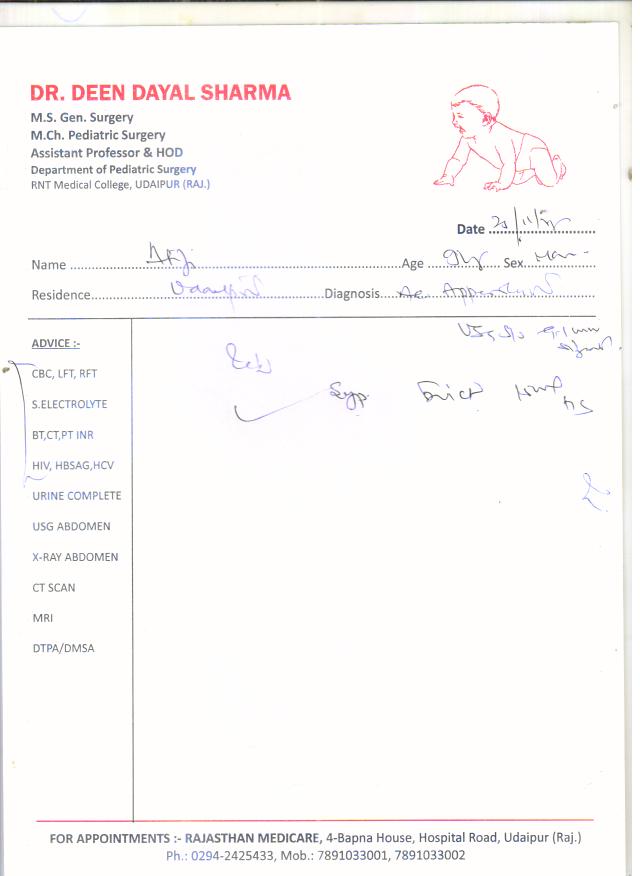 DR. DEEN DAYAL SHARMA
M.S. Gen. Surgery
M.Ch. Pediatric Surgery
Assistant Professor & HOD
Department of Pediatric Surgery
RNT Medical College, UDAIPUR (RAJ.)
Date
Name Age 9y Sex
Residence Udaipur Diagnosis Ac. Appendicitis
ADVICE :-
CBC, LFT, RFT
Syp.
S.ELECTROLYTE
BT,CT,PT INR
HIV, HBSAG,HCV
URINE COMPLETE
USG ABDOMEN
X-RAY ABDOMEN
CT SCAN
MRI
DTPA/DMSA
FOR APPOINTMENTS :- RAJASTHAN MEDICARE, 4-Bapna House, Hospital Road, Udaipur (Raj.)
Ph.: 0294-2425433, Mob.: 7891033001, 7891033002